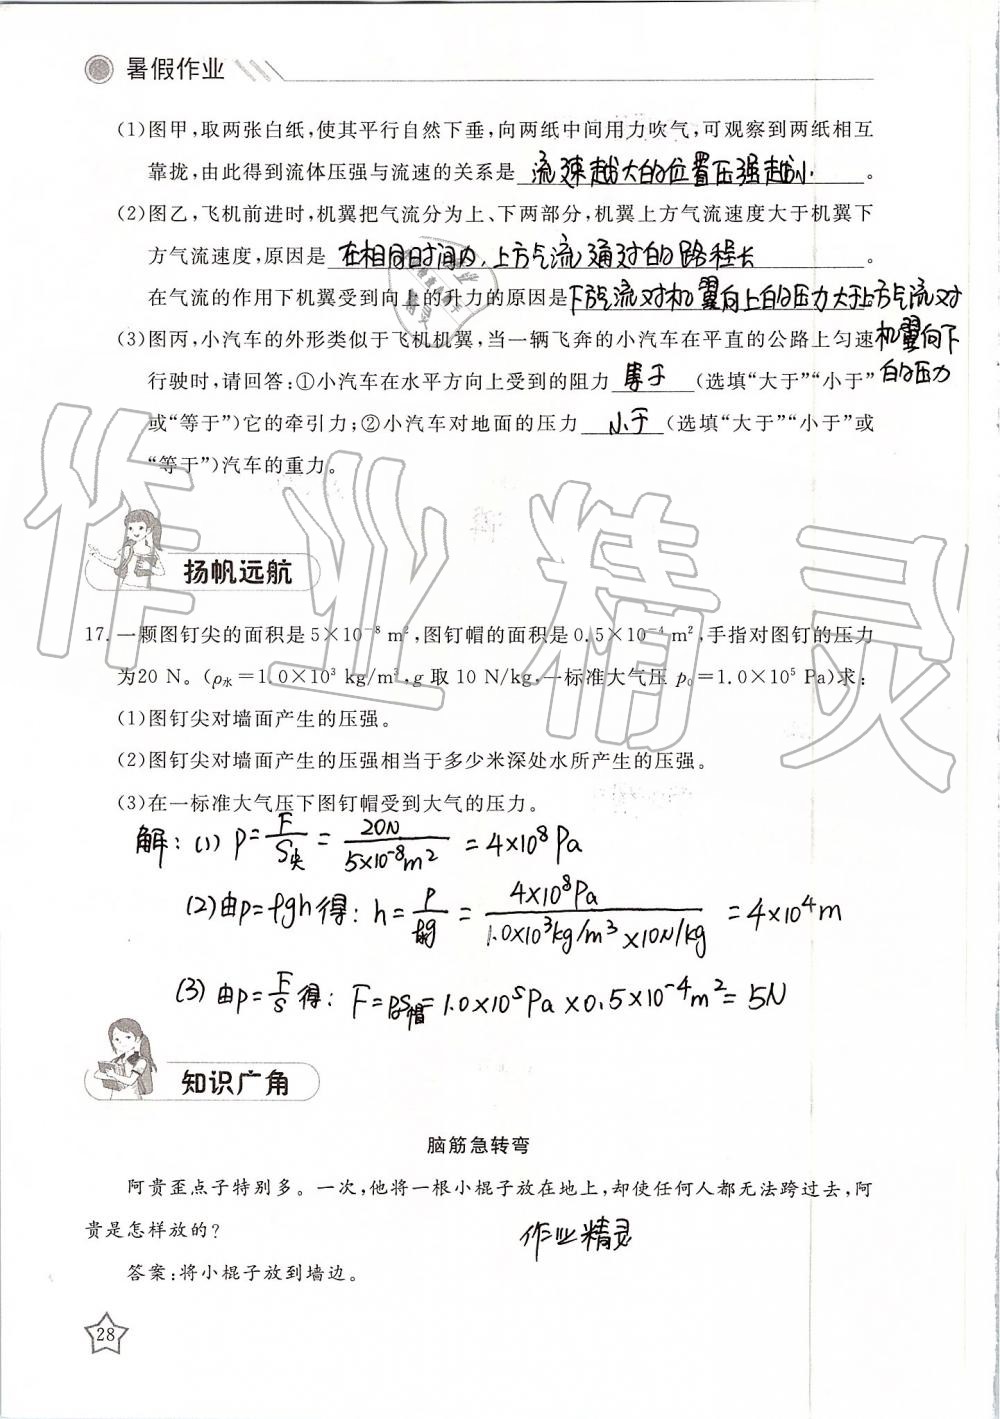 暑假作业
(1)图甲,取两张白纸,使其平行自然下垂,向两纸中间用力吹气,可观察到两纸相互
靠拢,由此得到流体压强与流速的关系是 流速越大的位置压强越小 。
(2)图乙,飞机前进时,机翼把气流分为上、下两部分,机翼上方气流速度大于机翼下
方气流速度,原因是 在相同时间内,上方气流通过的路程长 。
在气流的作用下机翼受到向上的升力的原因是下方气流对机翼向上的压力大于上方气流对
机翼向下
的压力
(3)图丙,小汽车的外形类似于飞机机翼,当一辆飞奔的小汽车在平直的公路上匀速
行驶时,请回答:①小汽车在水平方向上受到的阻力 等于 (选填“大于”“小于”
或“等于”)它的牵引力;②小汽车对地面的压力 小于 (选填“大于”“小于”或
“等于”)汽车的重力。
扬帆远航
17.一颗图钉尖的面积是5×10⁻⁸ m²,图钉帽的面积是0.5×10⁻⁴ m²,手指对图钉的压力
为20 N。(ρ水=1.0×10³ kg/m³,g取10 N/kg,一标准大气压 p₀=1.0×10⁵ Pa)求:
(1)图钉尖对墙面产生的压强。
(2)图钉尖对墙面产生的压强相当于多少米深处水所产生的压强。
(3)在一标准大气压下图钉帽受到大气的压力。
解:(1) P=F/S尖=20N/5×10⁻⁸m²=4×10⁸Pa
(2)由p=ρgh得:h=p/ρg=4×10⁸Pa/1.0×10³kg/m³×10N/kg=4×10⁴m
(3)由p=F/S得:F=p₀S帽=1.0×10⁵Pa×0.5×10⁻⁴m²=5N
知识广角
脑筋急转弯
阿贵歪点子特别多。一次,他将一根小棍子放在地上,却使任何人都无法跨过去,阿
贵是怎样放的?
作业精灵
答案:将小棍子放到墙边。
28
作业精灵